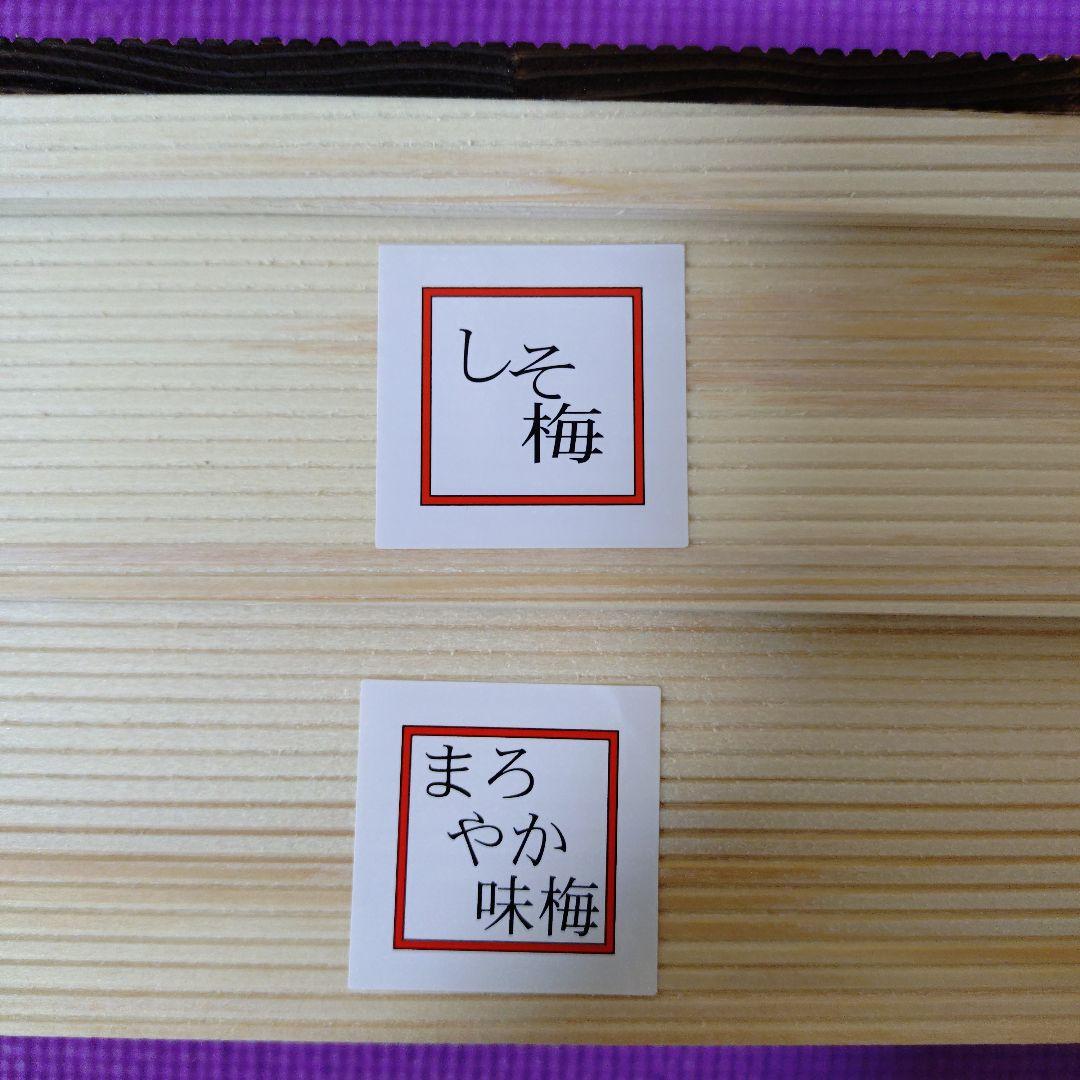 しそ
梅
まろ
やか
味梅